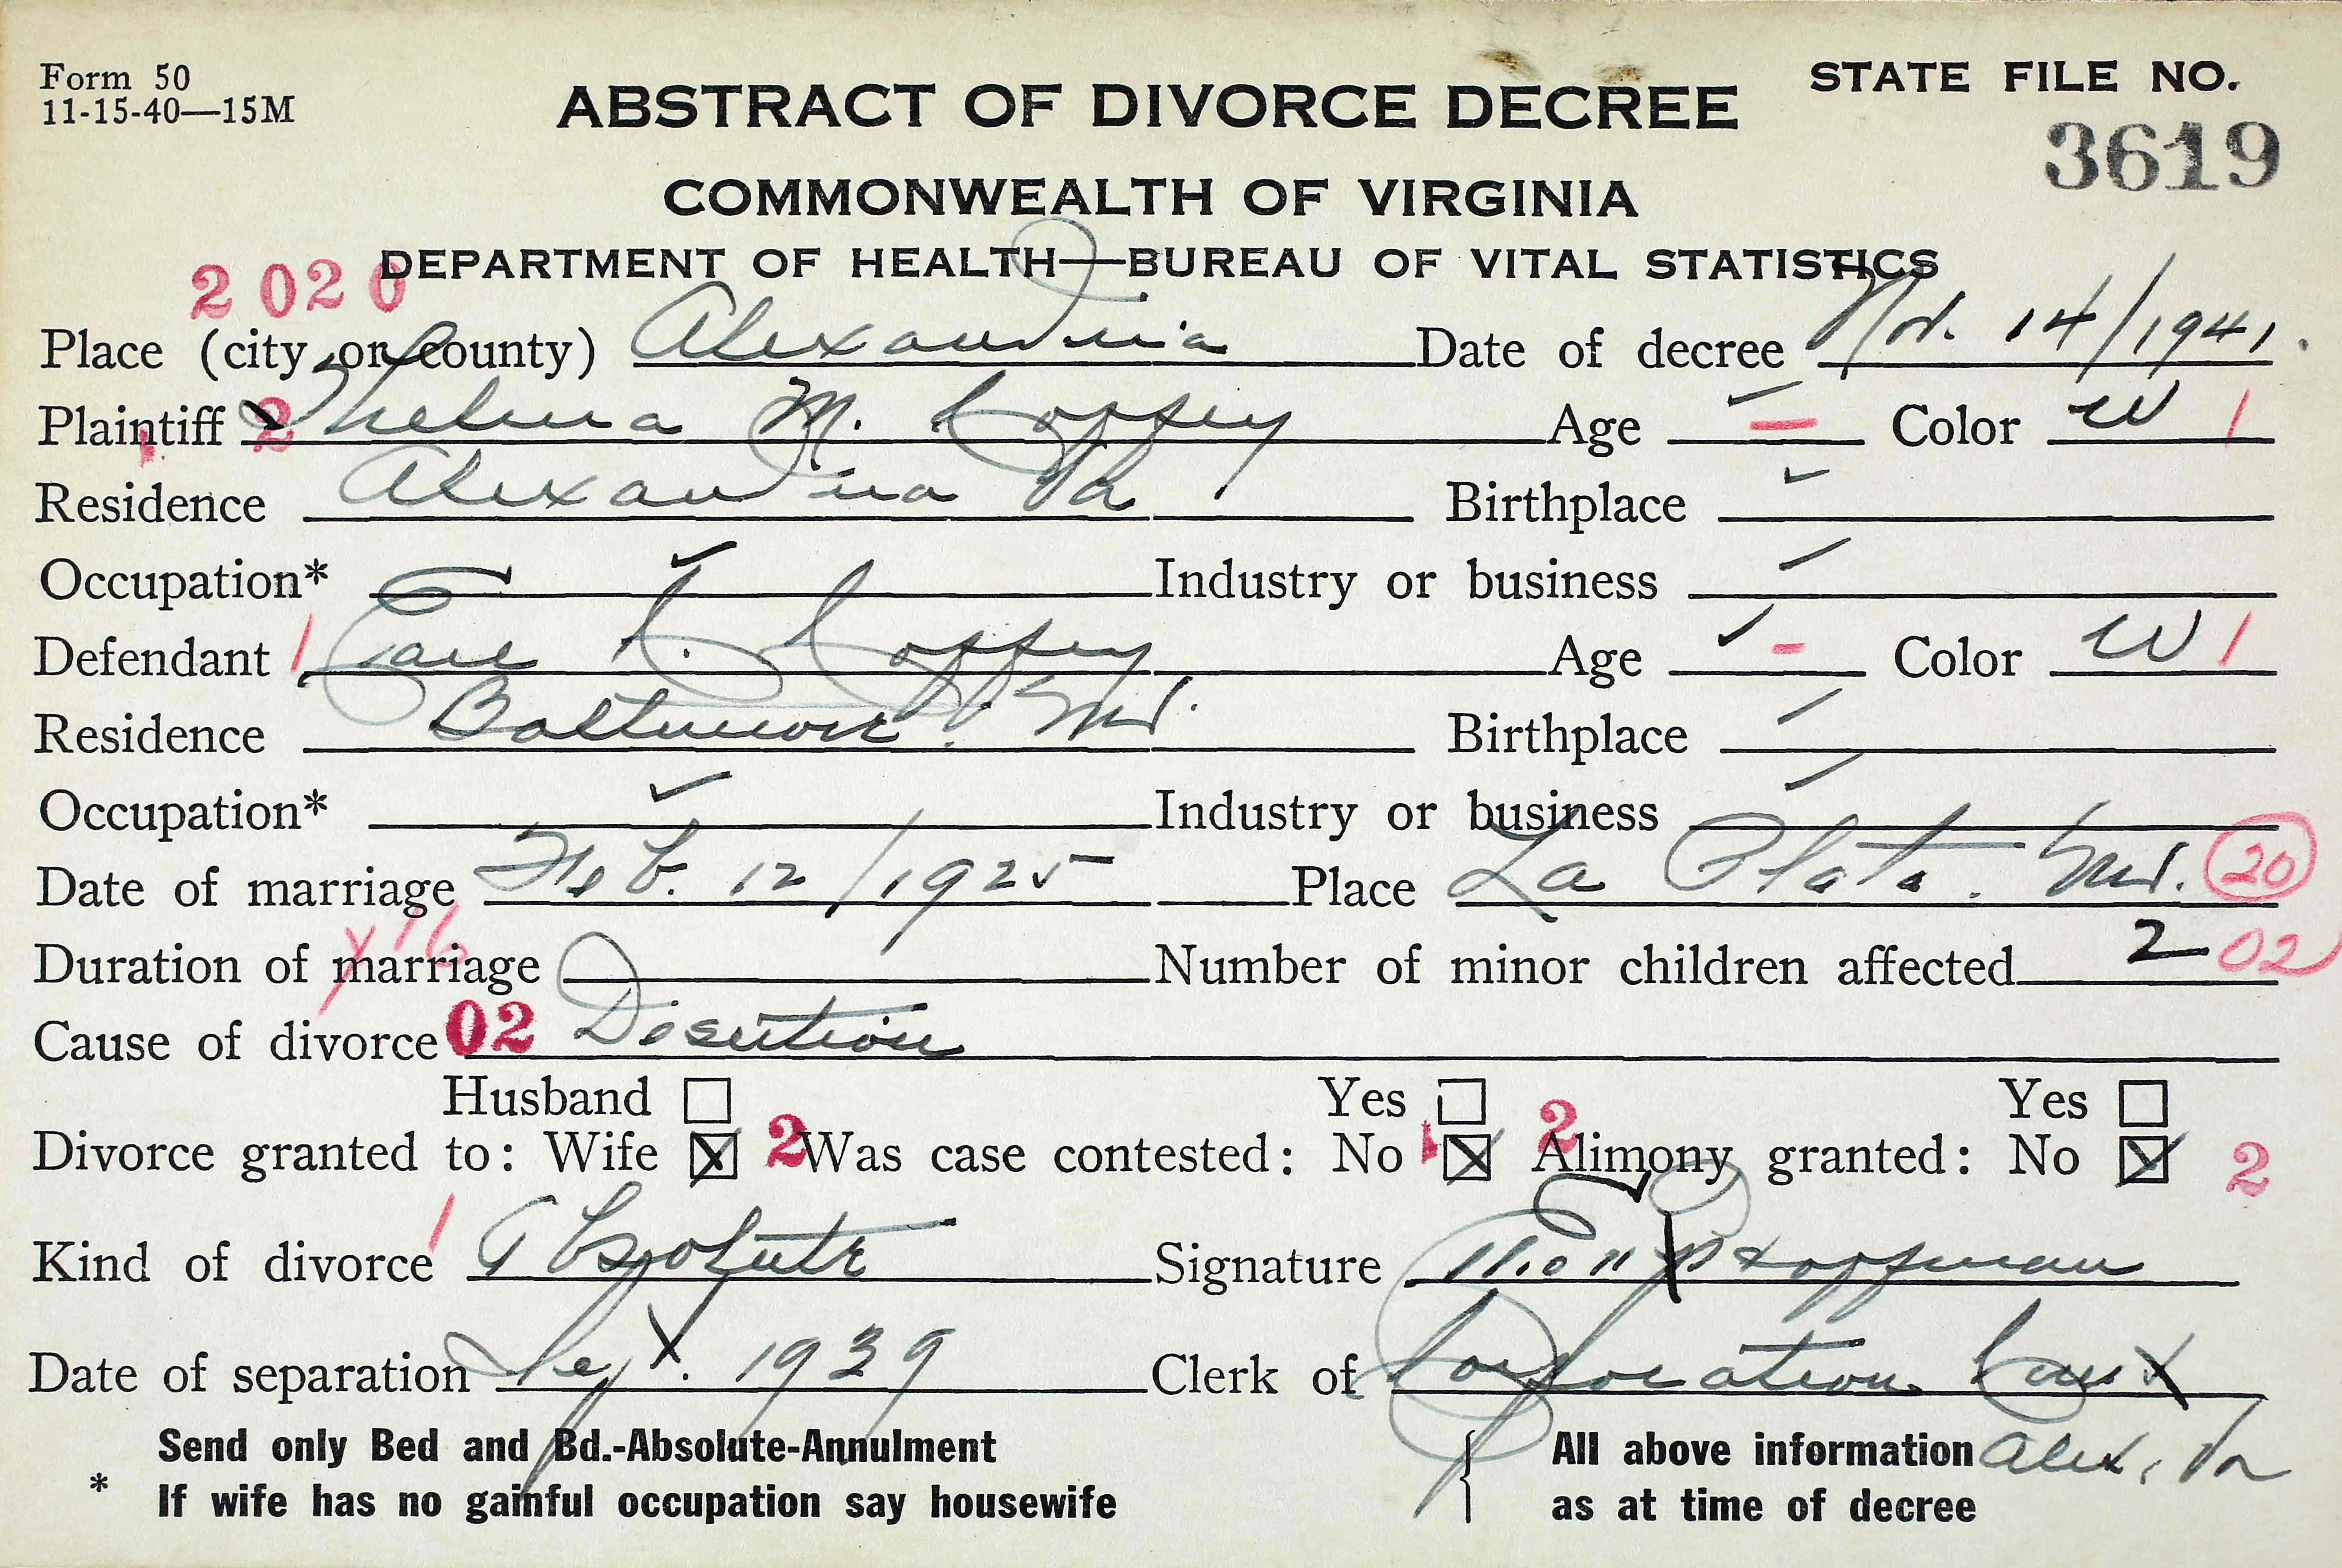 Form 50
11-15-40—15M
STATE FILE NO.
3619
ABSTRACT OF DIVORCE DECREE
COMMONWEALTH OF VIRGINIA
DEPARTMENT OF HEALTH—BUREAU OF VITAL STATISTICS
2 020
Place (city or county) Alexandria Date of decree Nov. 14/1941.
Plaintiff 2 Thelma M. Coffey Age – Color W 1
Residence Alexandria Va Birthplace
Occupation* Industry or business
Defendant 1 Carl L. Coffey Age - Color W 1
Residence Baltimore. Md. Birthplace
Occupation* Industry or business
Date of marriage Feb. 12/1925 Place La Plata. Md. 20
Duration of marriage 16 Number of minor children affected 2 02
Cause of divorce 02 Desertion
Husband Yes Yes
Divorce granted to: Wife X 2 Was case contested: No X 2 Alimony granted: No X 2
Kind of divorce 1 Absolute Signature Hoffman
Date of separation Sept. 1939 Clerk of Corporation Court
Alex, Va
Send only Bed and Bd.-Absolute-Annulment
* If wife has no gainful occupation say housewife
All above information
as at time of decree